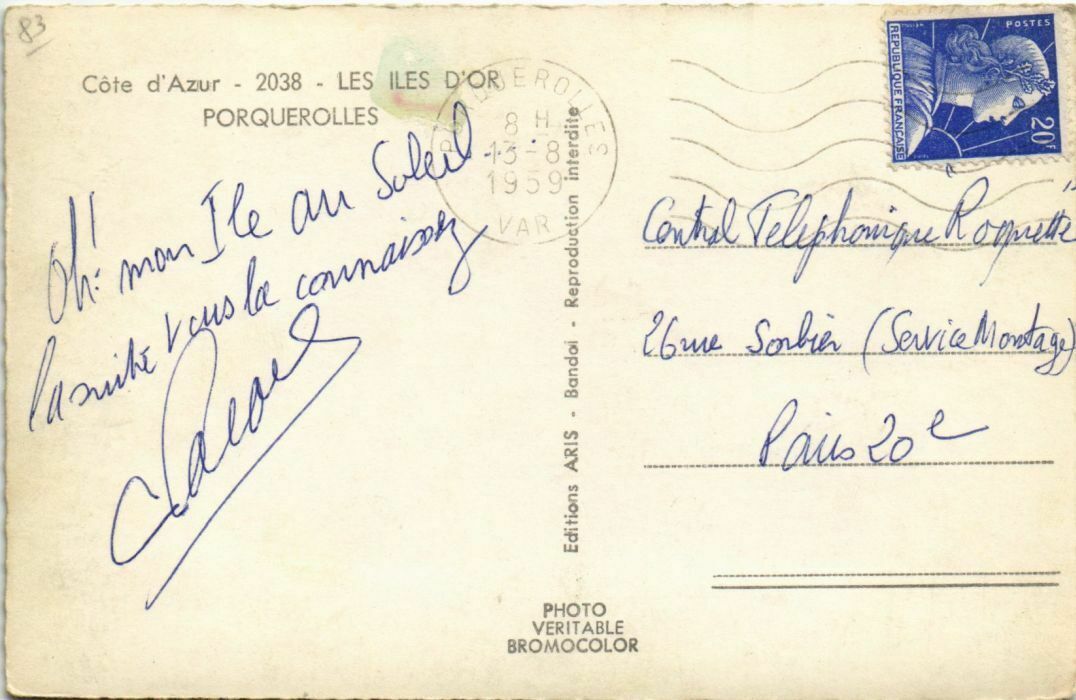 83
Côte d'Azur - 2038 - LES ILES D'OR
PORQUEROLLES
Oh! mon Ile au Soleil...
la suite vous la connaissez
PORQUEROLLES
8 H
13-8
1959
VAR
POSTES
REPUBLIQUE FRANÇAISE
20F
Central Telephonique "Roquette"
26 rue Sorbier (Service Montage)
Paris 20e
Editions ARIS - Bandol - Reproduction interdite
PHOTO
VERITABLE
BROMOCOLOR